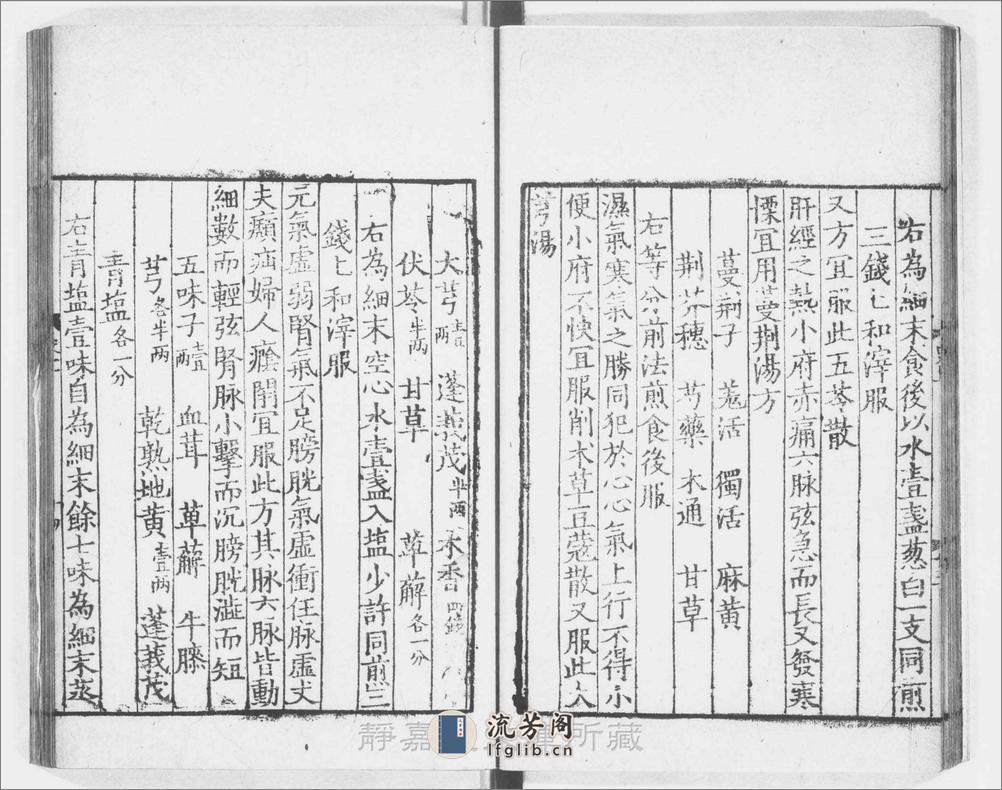 右為細末食後以水壹盞葱白一支同煎
三錢匕和滓服
又方冝服此五苓散
肝經之熱小府赤痛六脉弦急而長又發寒
慄冝用蔓荆湯方
蔓荆子　羗活　獨活　麻黄
荆芥穗　芍藥　木通　甘草
右等分前法煎食後服
濕氣寒氣之勝同犯於心心氣上行不得小
便小府不快冝服削术草豆蔻散又服此大
芎湯
大芎壹兩　蓬莪茂半兩　木香四錢
伏苓半兩　甘草　萆薢各一分
右為細末空心水壹盞入塩少許同煎三
錢匕和滓服
元氣虚弱腎氣不足膀胱氣虚衝任脉虚丈
夫癩疝婦人癃閉冝服此方其脉六脉皆動
細數而輕弦腎脉小擊而沉膀胱澁而短
五味子壹兩　血茸　萆薢　牛膝
芎各半兩　乾熟地黄壹兩　蓬莪茂
青塩各一分
右青塩壹味自為細末餘七味為細末蒸
靜嘉 所藏
流芳阁
lfglib.cn